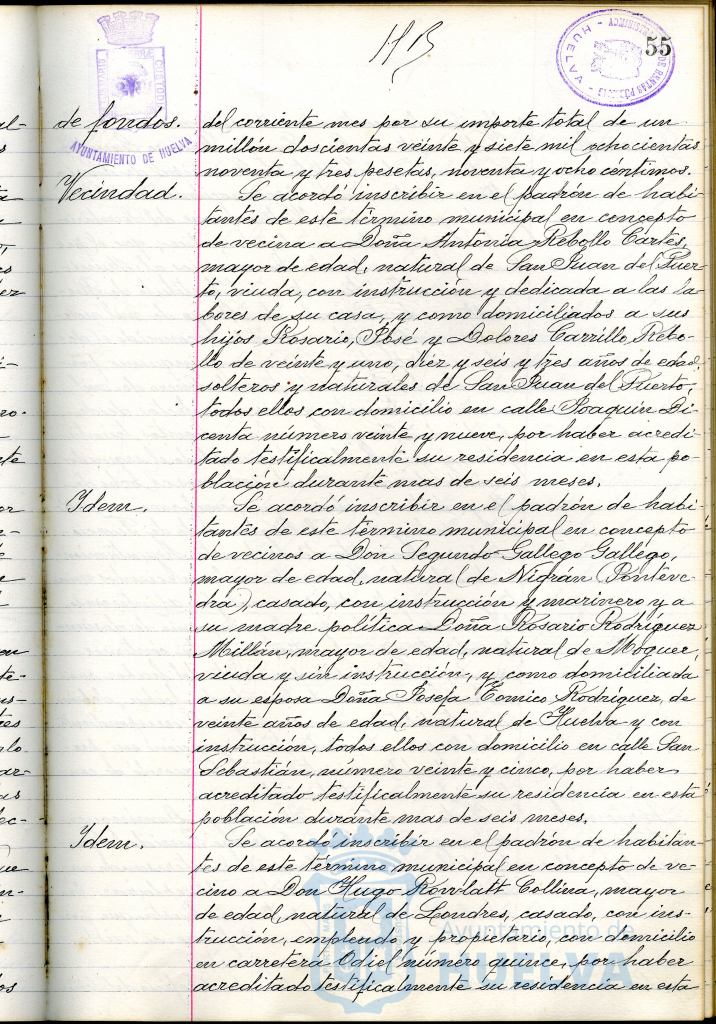 HB
55
AYUNTAMIENTO DE HUELVA
HUELVA
de fondos.
del corriente mes por su importe total de un
millón doscientas veinte y siete mil ochocientas
noventa y tres pesetas, noventa y ocho céntimos.
Vecindad.
Se acordó inscribir en el padrón de habi-
tantes de este término municipal en concepto
de vecina a Doña Antonia Rebollo Cartes,
mayor de edad, natural de San Juan del Puer-
to, viuda, con instrucción y dedicada a las la-
bores de su casa, y como domiciliados a sus
hijos Rosario, José y Dolores Carrillo Rebo-
llo de veinte y uno, diez y seis y tres años de edad,
solteros y naturales de San Juan del Puerto,
todos ellos con domicilio en calle Joaquin Di-
centa número veinte y nueve, por haber acredi-
tado testificalmente su residencia en esta po-
blación durante mas de seis meses.
Idem.
Se acordó inscribir en el padrón de habi-
tantes de este término municipal en concepto
de vecinos a Don Segundo Gallego Gallego,
mayor de edad, natural de Nigrán (Ponteve-
dra), casado, con instrucción y marinero y a
su madre política Doña Rosario Rodríguez
Millán, mayor de edad, natural de Moguer,
viuda y sin instrucción, y como domiciliada
a su esposa Doña Josefa Tomico Rodríguez, de
veinte años de edad, natural de Huelva y con
instrucción, todos ellos con domicilio en calle San
Sebastián, número veinte y cinco, por haber
acreditado testificalmente su residencia en esta
población durante mas de seis meses.
Idem.
Se acordó inscribir en el padrón de habitan-
tes de este término municipal en concepto de ve-
cino a Don Hugo Rowlatt Collina, mayor
de edad, natural de Londres, casado, con ins-
trucción, empleado y propietario, con domicilio
en carretera Odiel número quince, por haber
acreditado testificalmente su residencia en esta
Ayuntamiento de
HUELVA